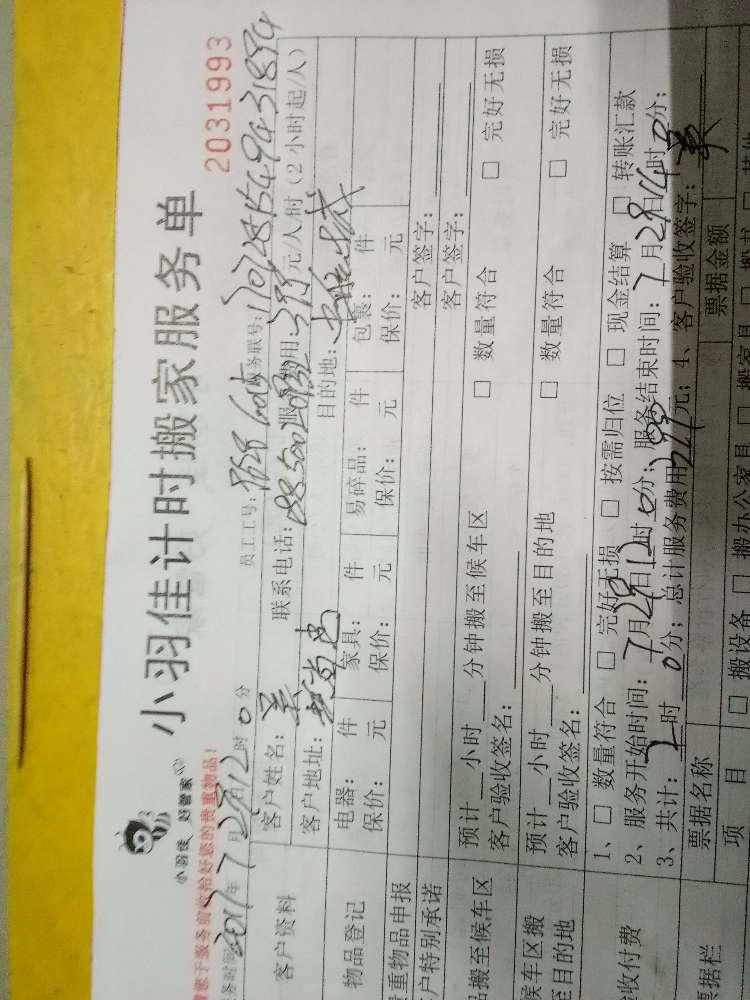 小羽佳 好管家
小羽佳计时搬家服务单
2031993
您于服务前收拾好您的贵重物品!
务时间 2017年7月28日12时0分
员工工号: 务联号:
客户资料
客户姓名: 吴 联系电话: 服 费用: 元/人/时(2小时起/人)
客户地址: 目的地:
物品登记
电器: 件 家具: 件 易碎品: 件 包裹: 件
保价: 元 保价: 元 保价: 元 保价: 元
重物品申报 客户签字:
户特别承诺 客户签字:
品搬至候车区
预计 小时 分钟搬至候车区 □ 数量符合 □ 完好无损
客户验收签名:
候车区搬
至目的地
预计 小时 分钟搬至目的地 □ 数量符合 □ 完好无损
客户验收签名:
收付费
1、□ 数量符合 □ 完好无损 □ 按需归位 □ 现金结算 □ 转账汇款
2、服务开始时间: 7月28日12时0分; 服务结束时间: 7月28日14时0分;
3、共计: 2时0分; 总计服务费用 元; 4、客户验收签字: 吴
票据栏
票据名称 票据金额
项 目 □ 搬设备 □ 搬办公家具 □ 搬家具